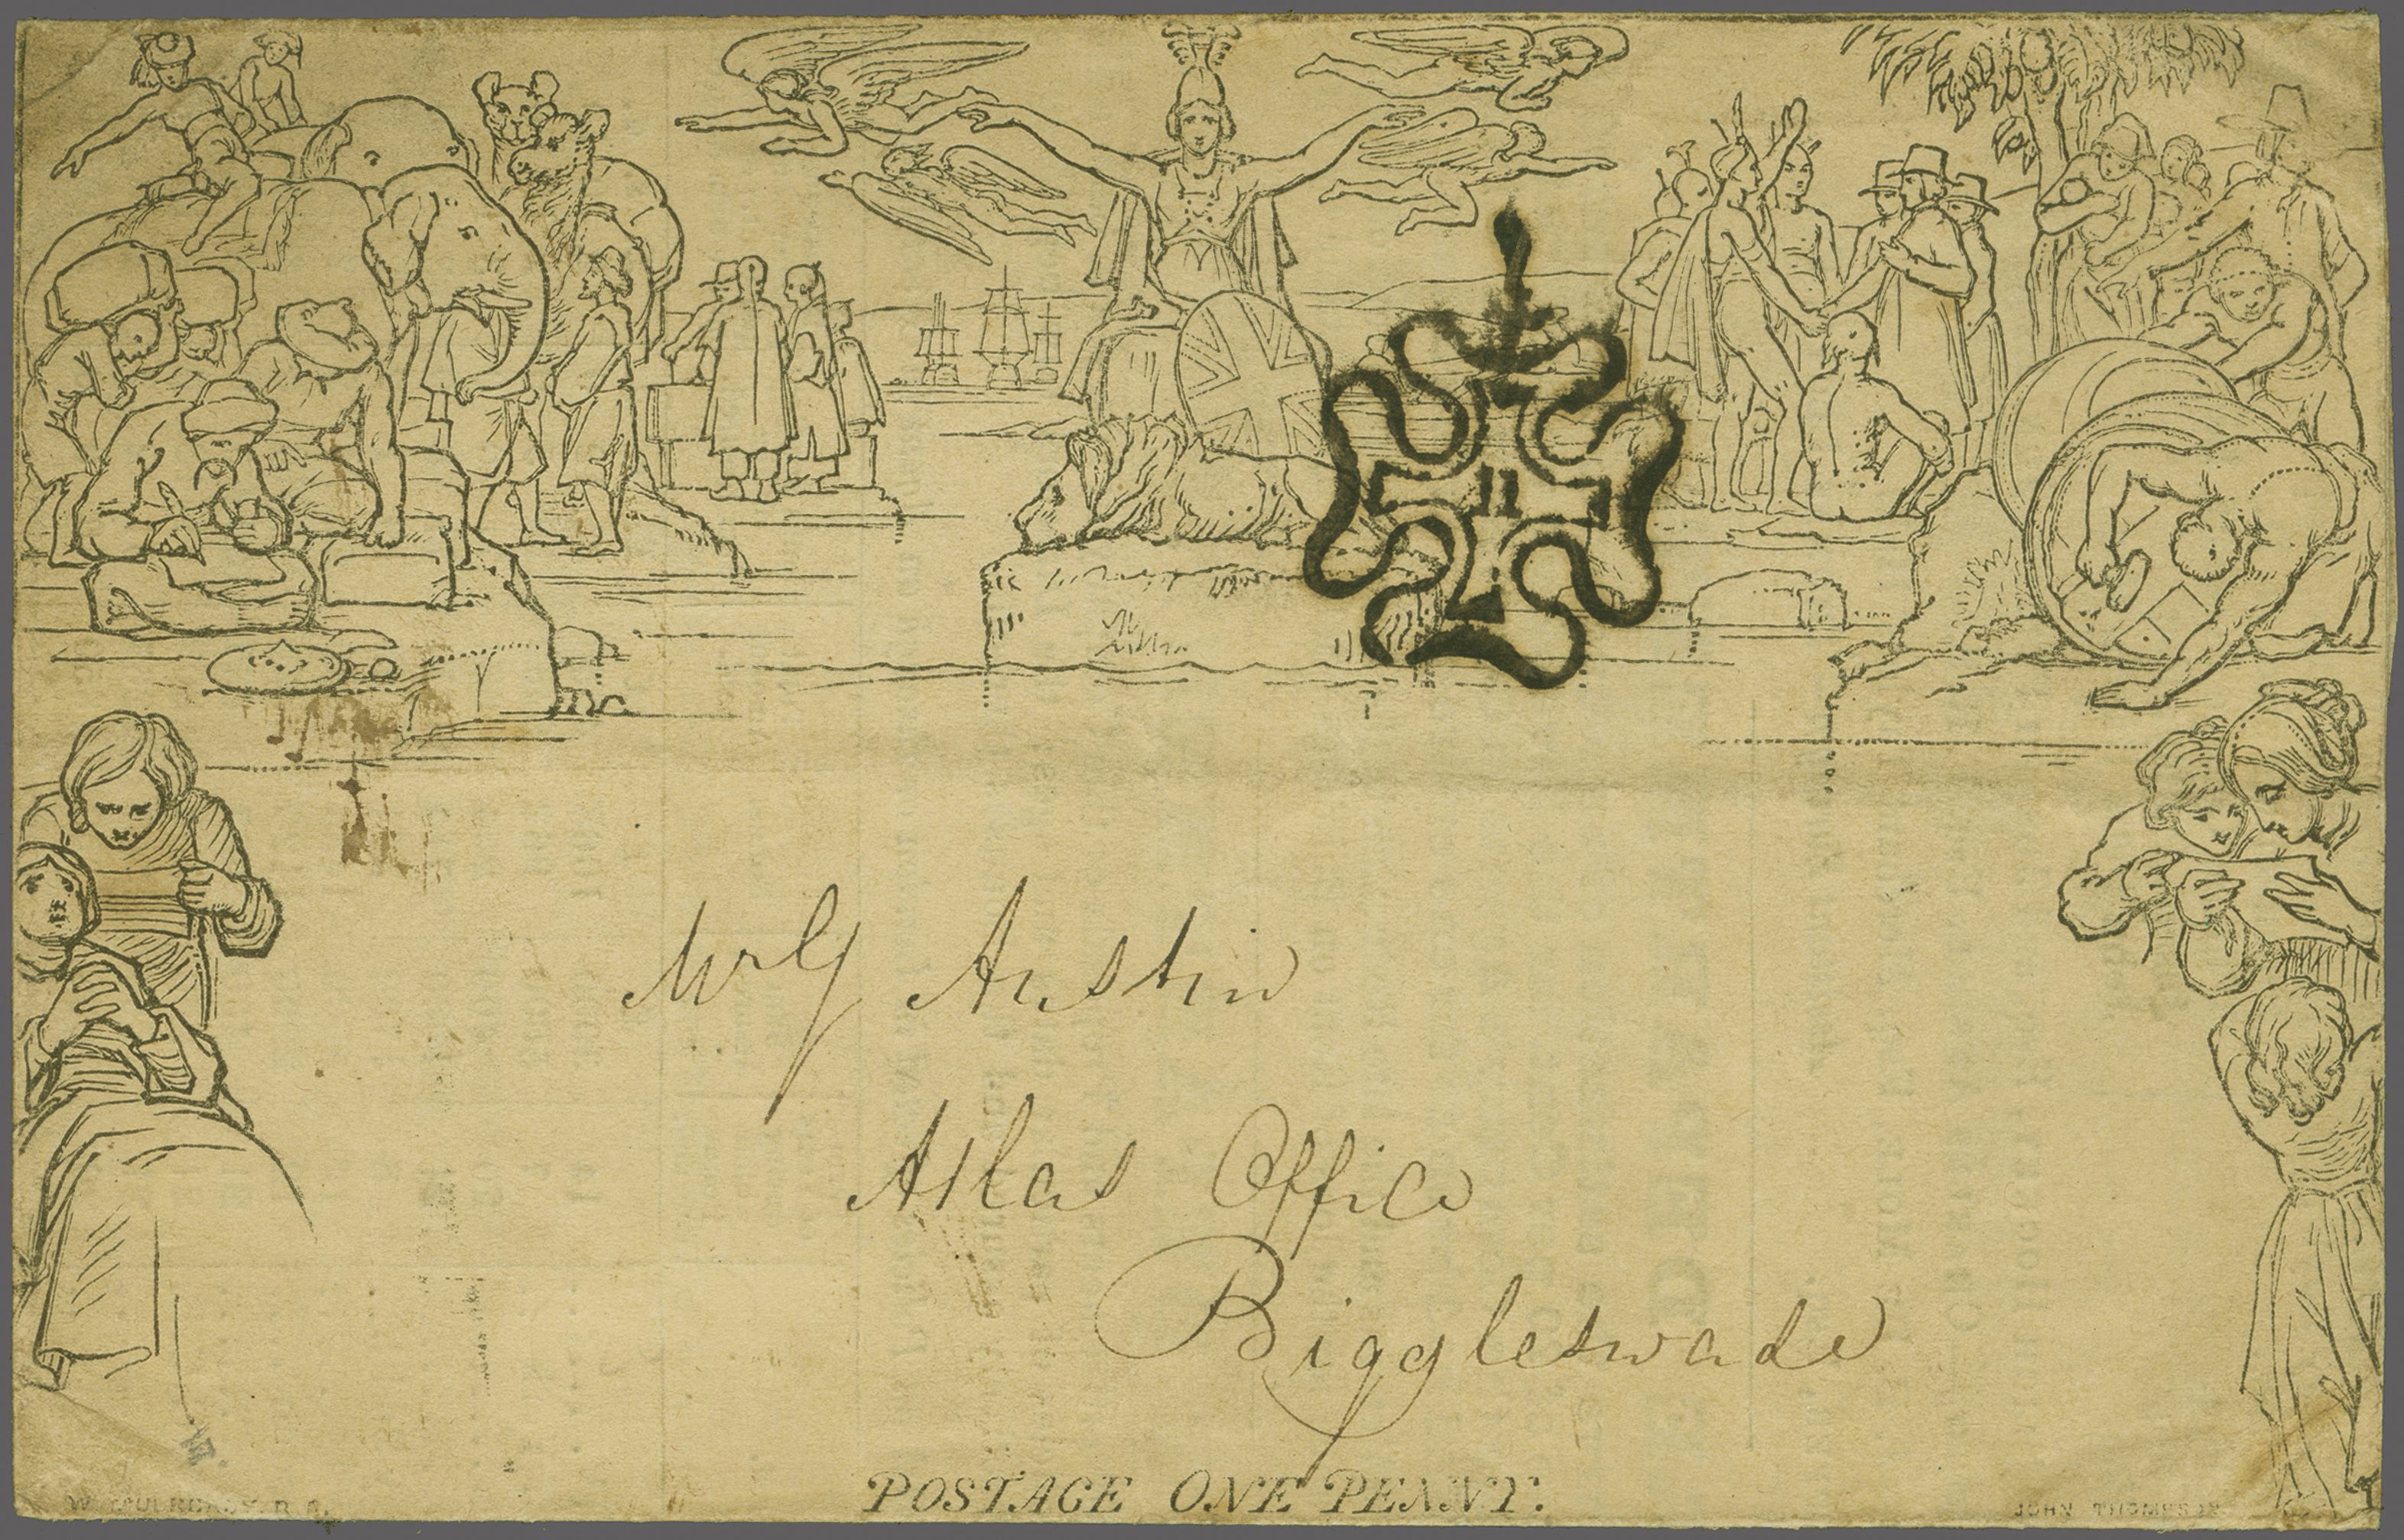 11
Mr G Austin
Atlas Office
Biggleswade
POSTAGE ONE PENNY.
W. MULREADY. R. A.
JOHN THOMPSON